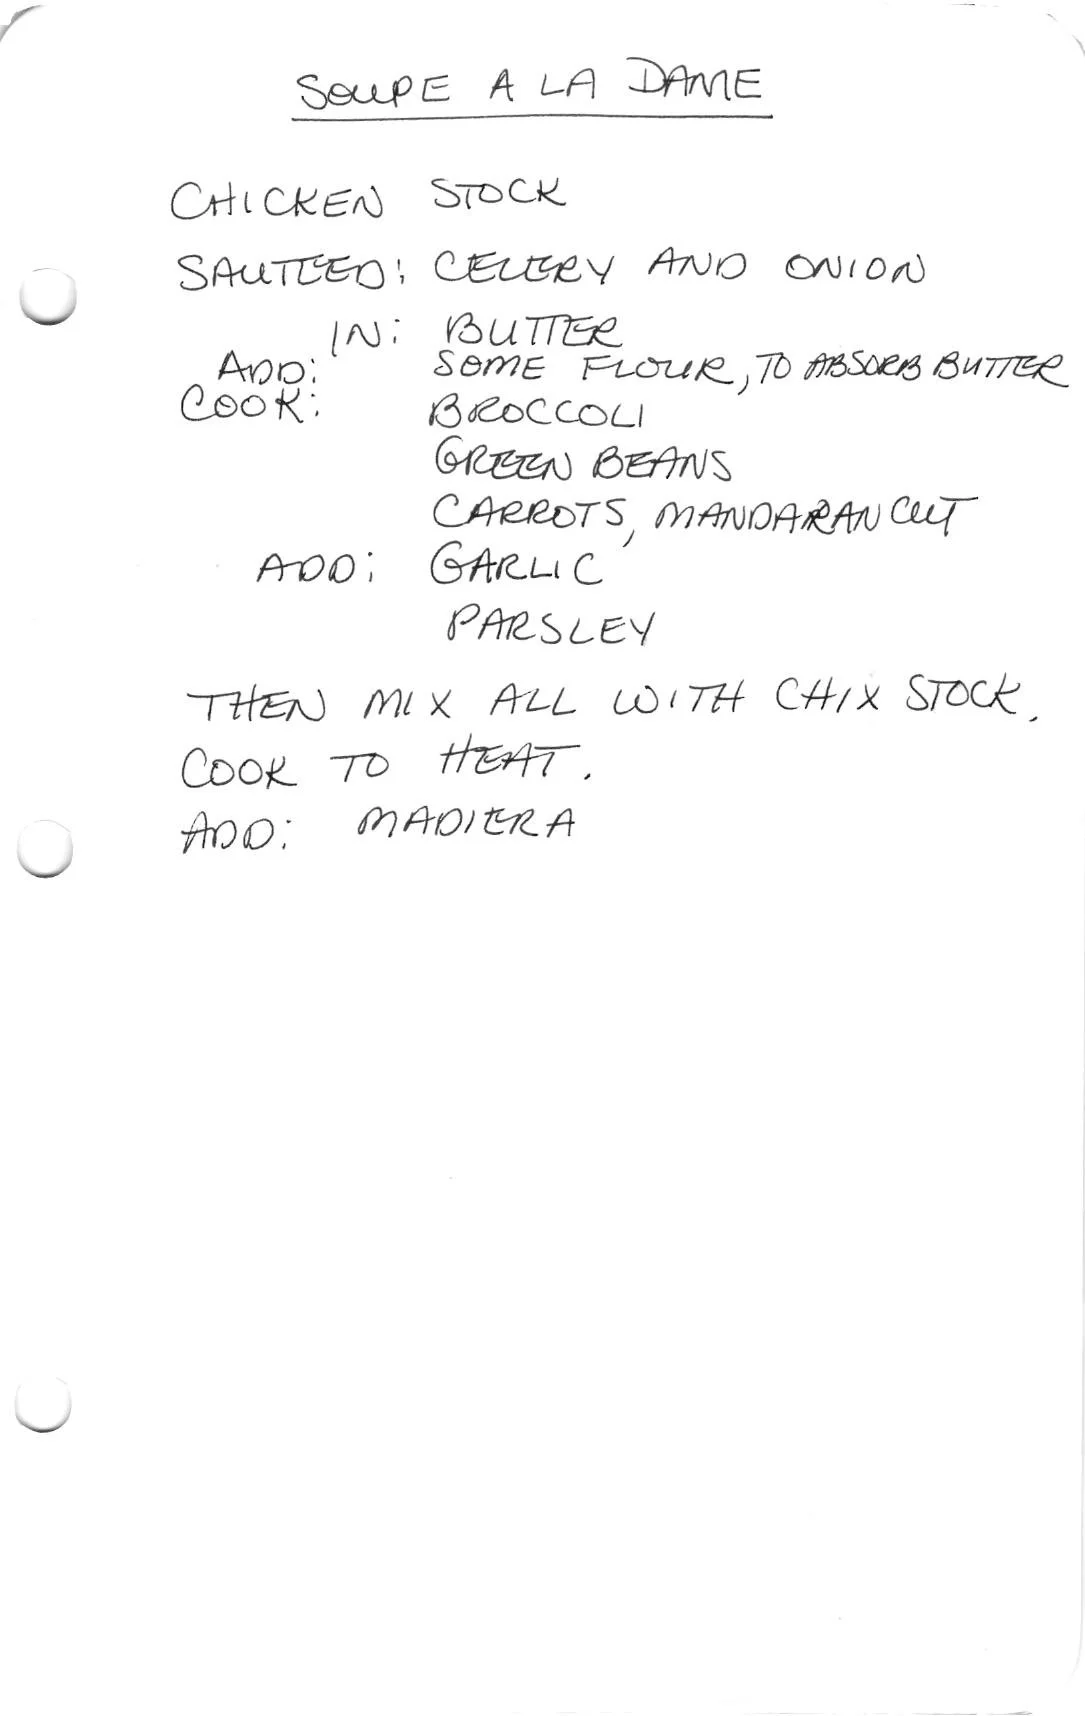 SOUPE A LA DAME
CHICKEN STOCK
SAUTEED: CELERY AND ONION
IN: BUTTER
ADD: SOME FLOUR, TO ABSORB BUTTER
COOK: BROCCOLI
GREEN BEANS
CARROTS, MANDARAN CUT
ADD: GARLIC
PARSLEY
THEN MIX ALL WITH CHIX STOCK.
COOK TO HEAT.
ADD: MADIERA